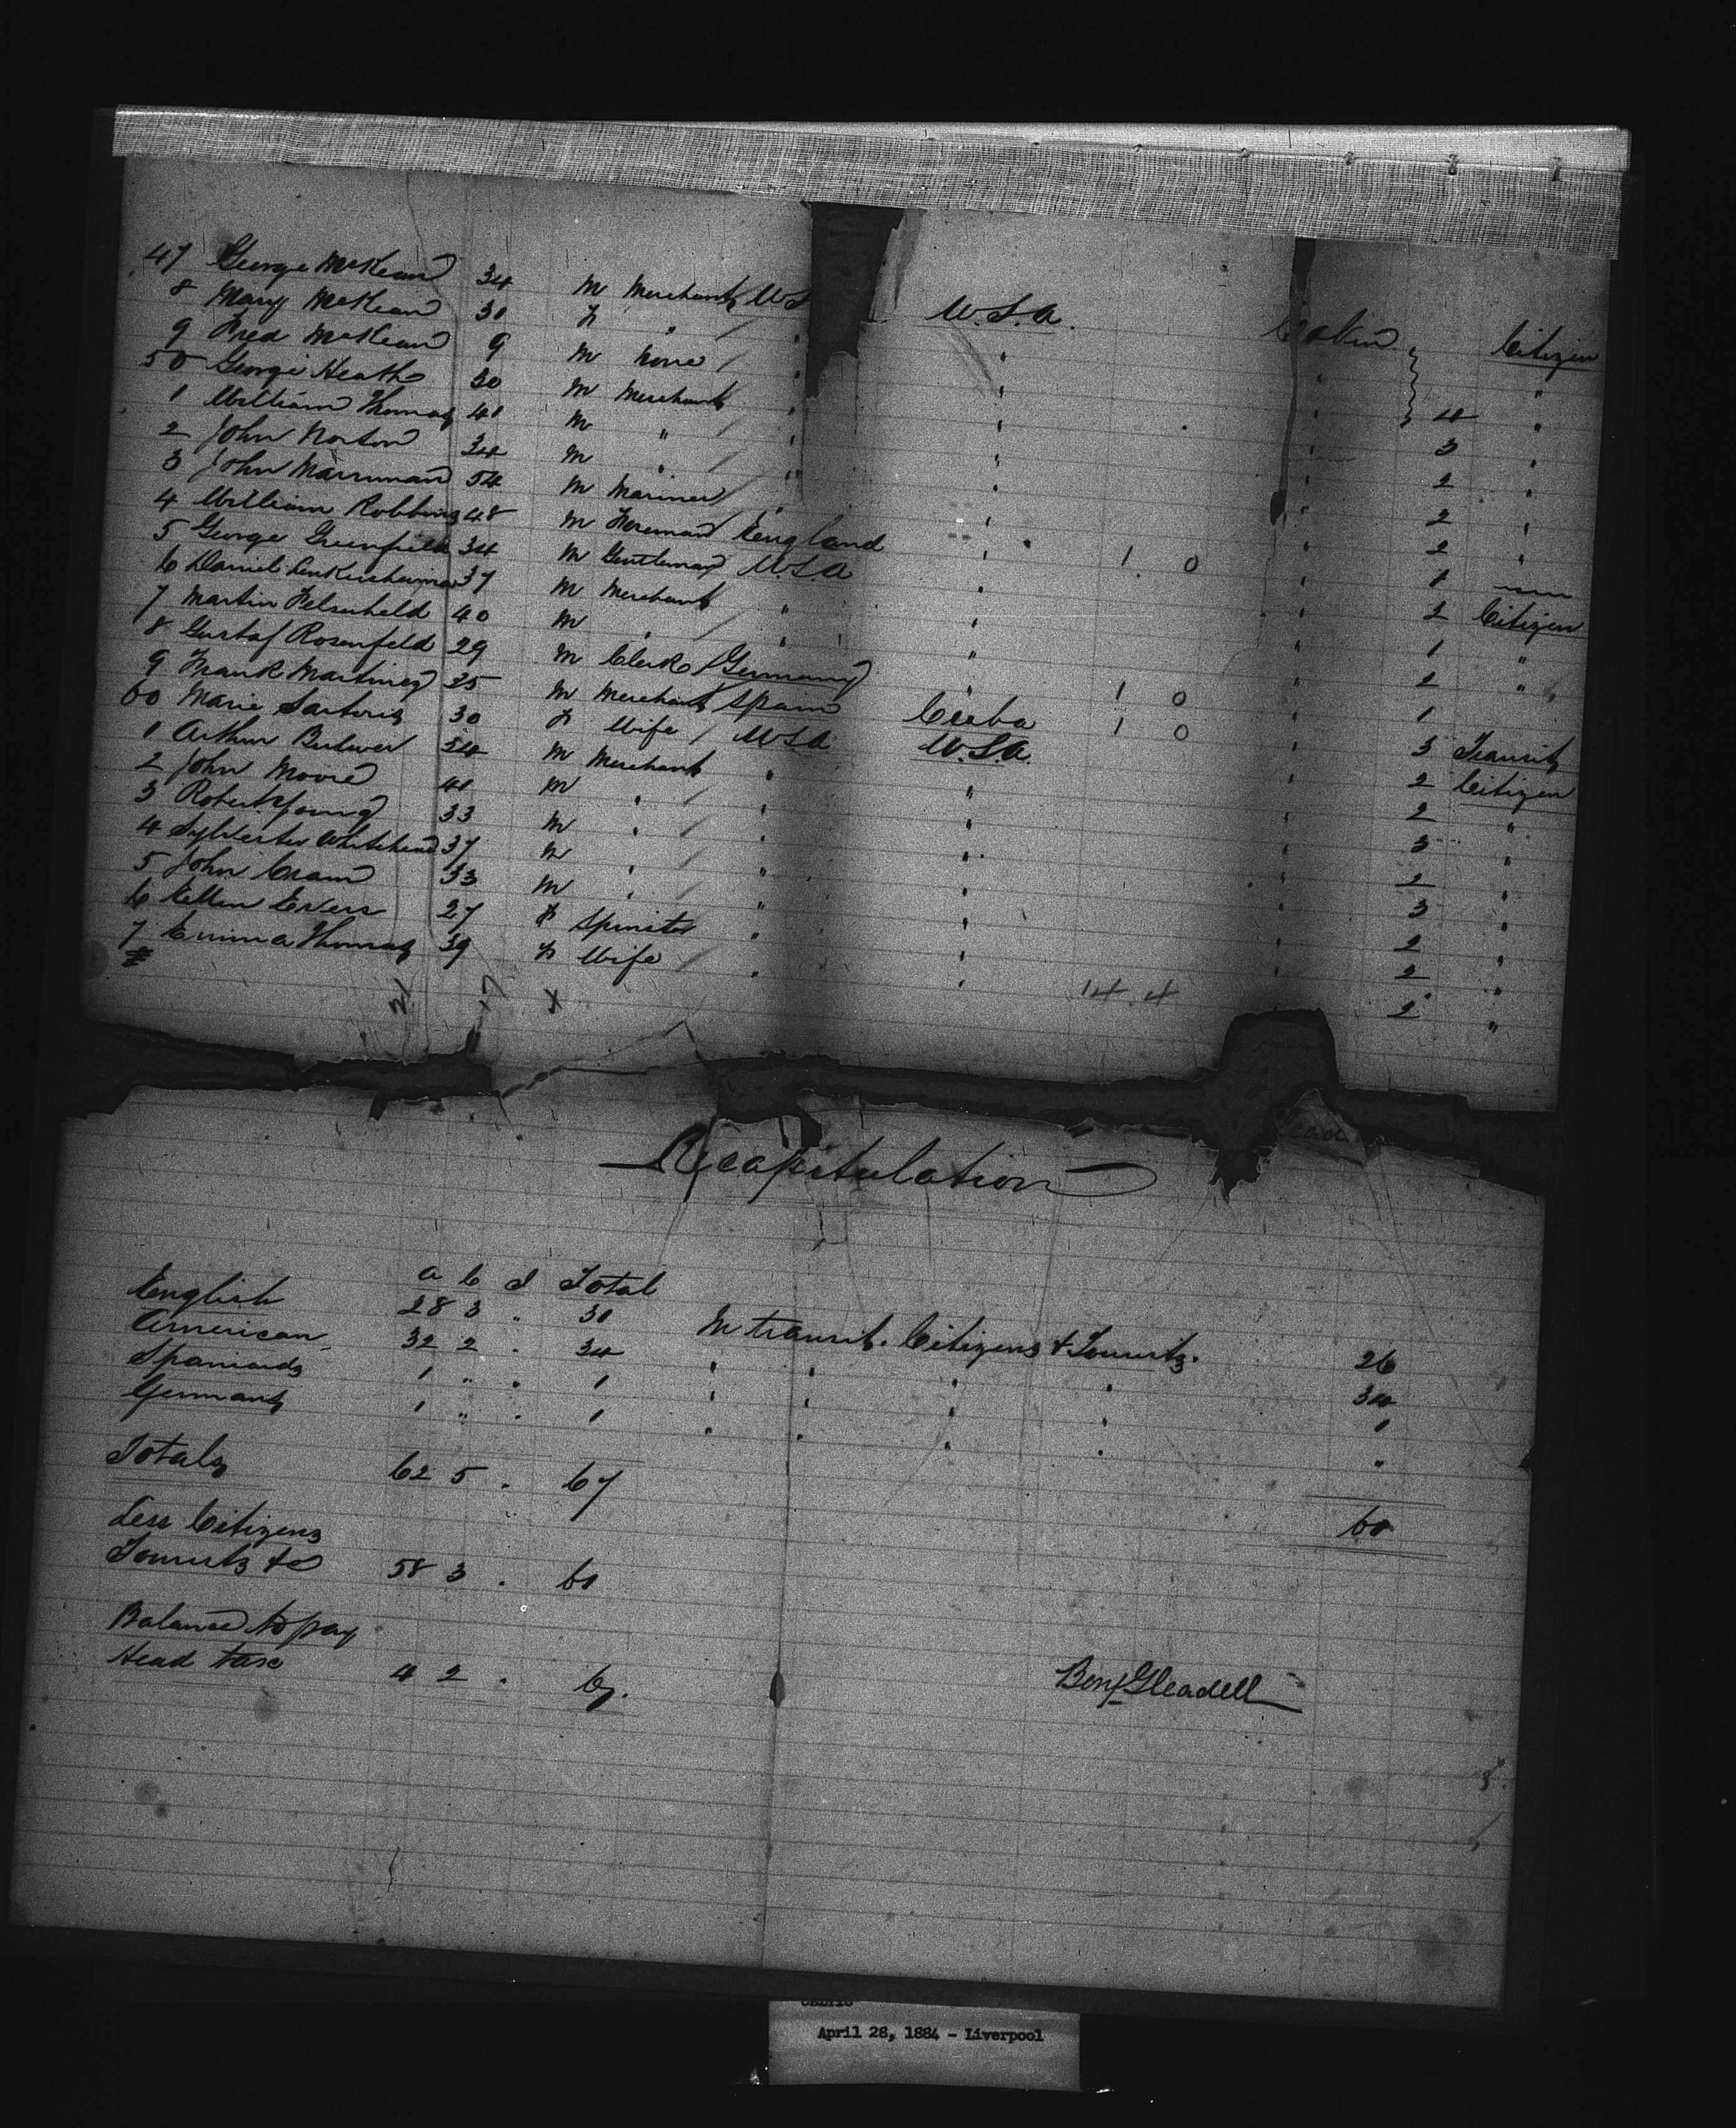 47 George McKean 34 M Merchant U.S U.S.A. Cabin Citizen
8 Mary McKean 30 F " " " " "
9 Fred McKean 9 M None " " " 4 "
50 George Heath 30 M Merchant " " " 3 "
1 William Thomas 41 M " " " " 2 "
2 John Norton 34 M " " " " 2 "
3 John Marruman 54 M Mariner " " " 2 "
4 William Robbins 48 M Foreman England " 1 0 " 1
5 George Greenfield 34 M Gentleman U.S.A " " 2 Citizen
6 Daniel 37 M Merchant " " " 1 "
7 Martin Felsenheld 40 M " " " " 2 "
8 Gustaf Rosenfeld 29 M Clerk Germany " 1 0 " 1
9 Frank Martinez 25 M Merchant Spain Cuba 1 0 " 3 Transit
60 Marie Sartoris 30 F Wife U.S.A U.S.A. " 2 Citizen
1 Arthur Bulwer 34 M Merchant " " " 2 "
2 John Moore 41 M " " " " 3 "
3 Robert Young 33 M " " " " 2 "
4 Sylvester Whitehead 37 M " " " " 3 "
5 John Cram 33 M " " " " 2 "
6 Ellen Evers 27 F Spinster " " " 2 "
7 Emma Thomas 39 F Wife " " " 2 "
14.4
Recapitulation
a C I Total
English 28 3 " 31 In transit. Citizens & Tourists. 26
American 32 2 " 34 " " " " 34
Spaniards 1 " " 1 " " " " 1
Germans 1 " " 1 " " " " "
Totals 62 5 . 67 61
Less Citizens
Tourists &c 58 3 . 61
Balance to pay
Head tax 4 2 . 6.
Benj Gleadell
CELTIC
April 28, 1884 - Liverpool